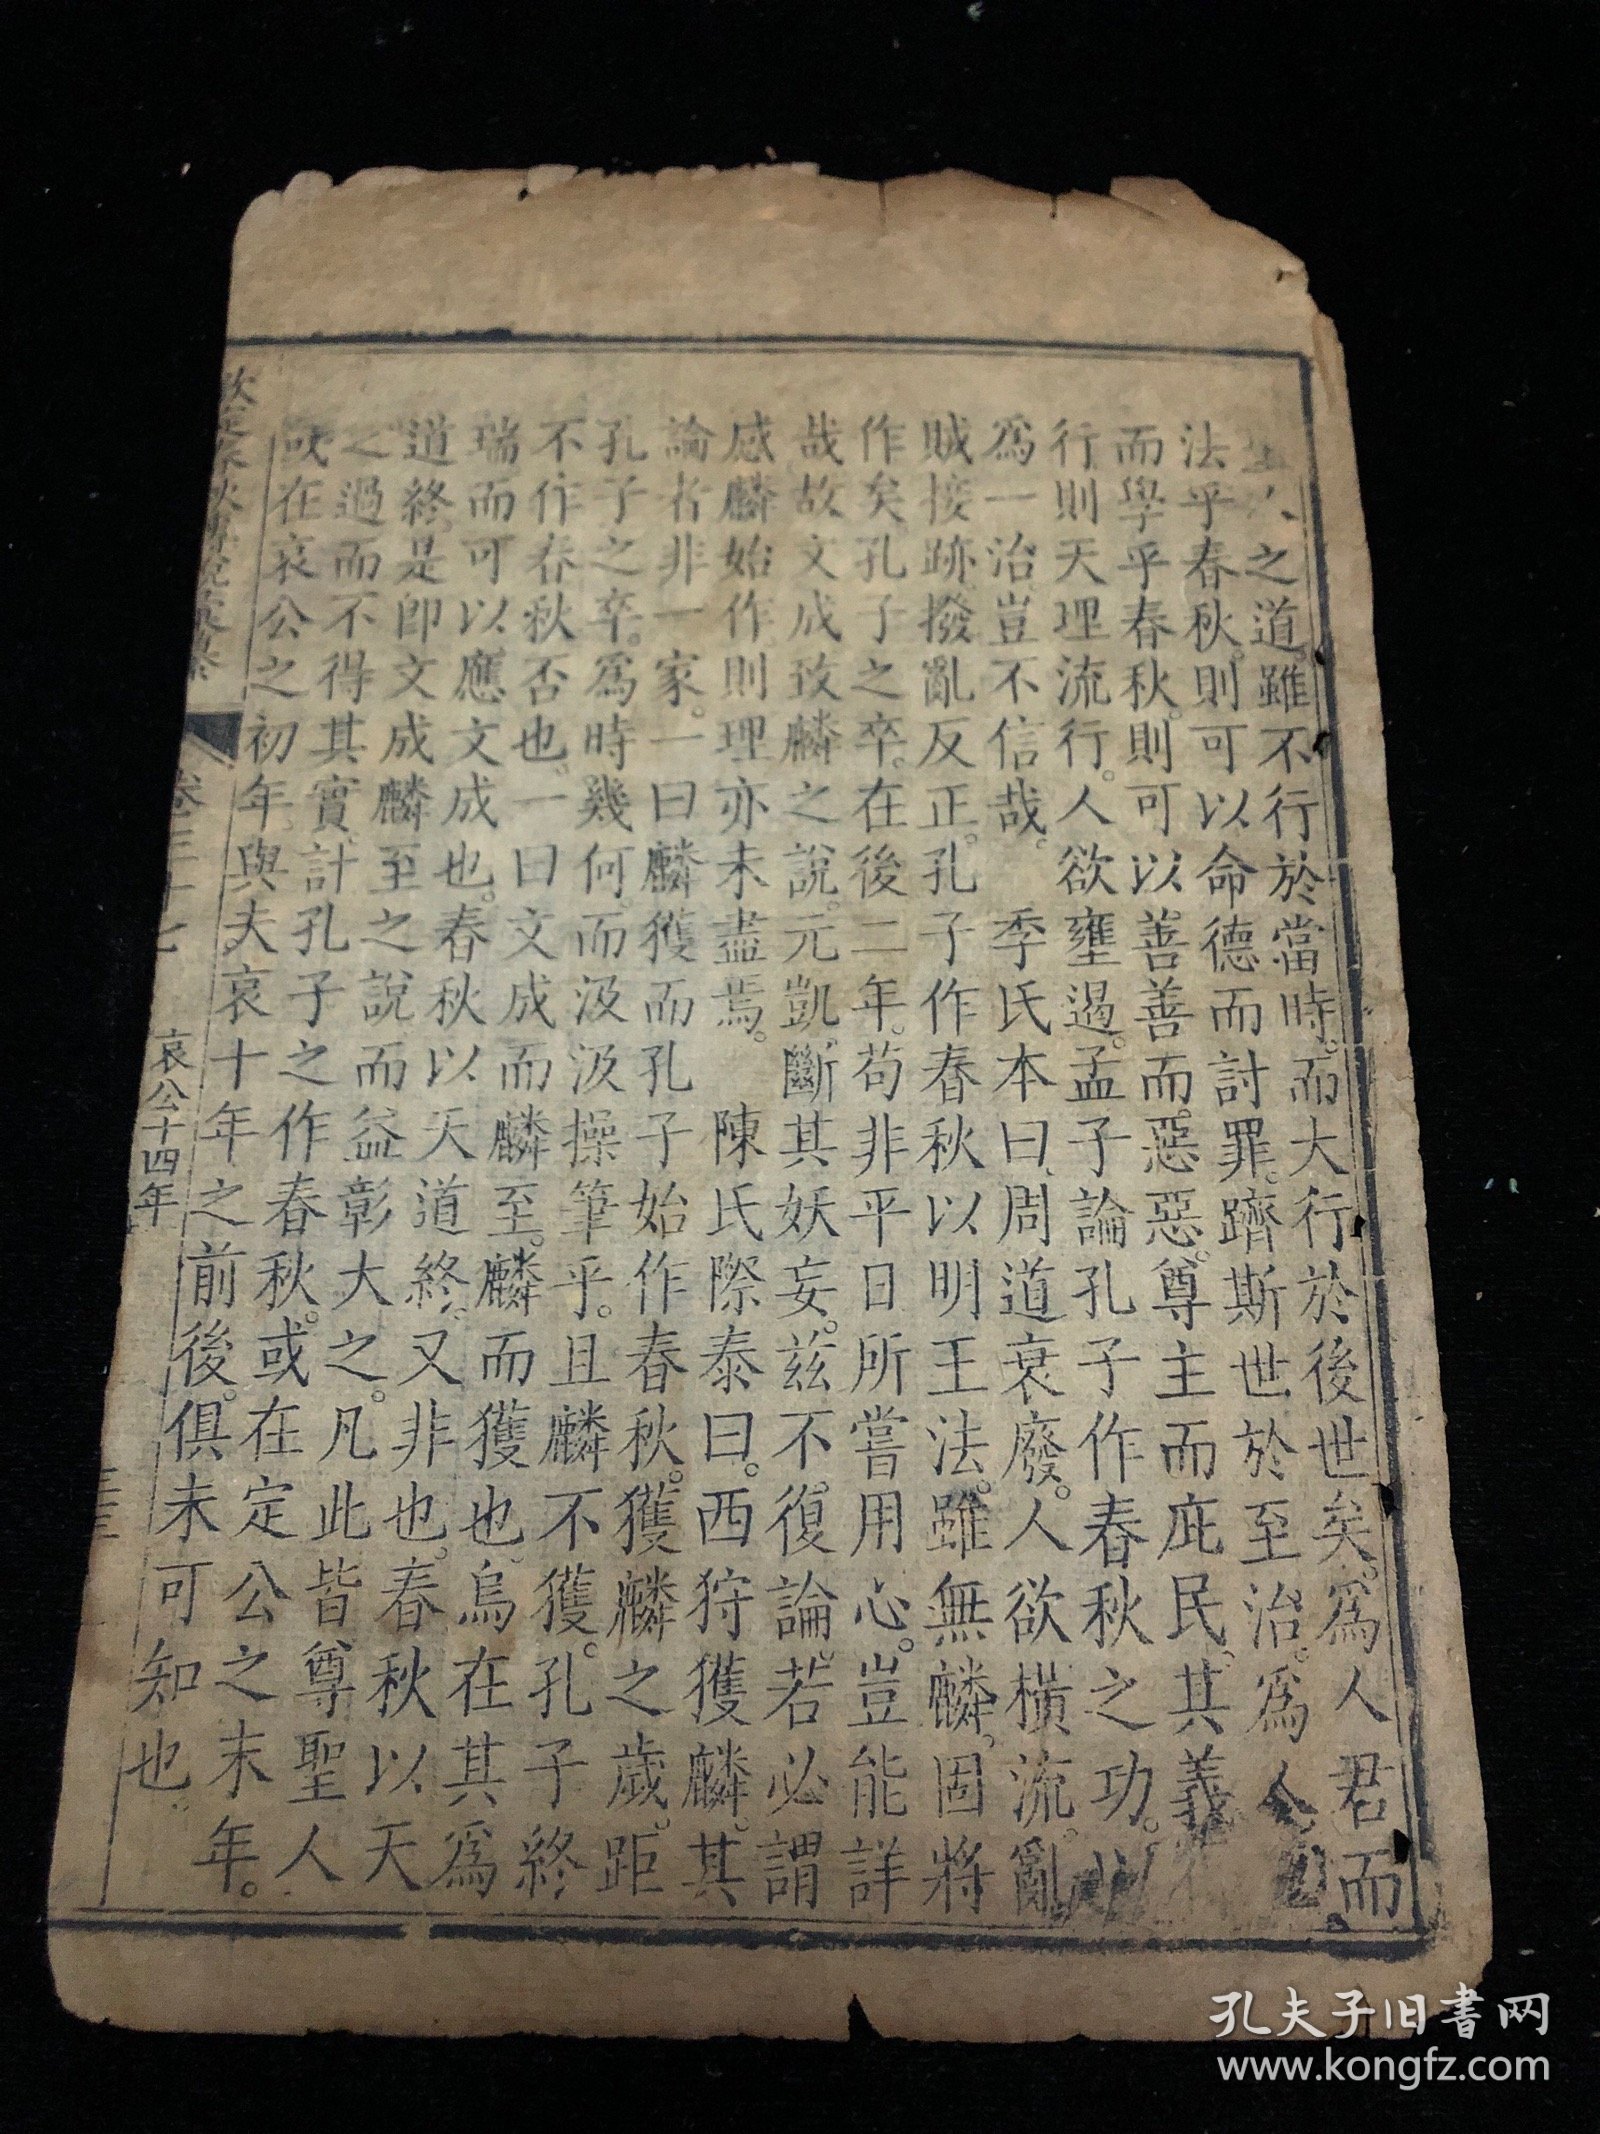 聖人之道雖不行於當時而大行於後世矣爲人君而
法乎春秋則可以命德而討罪躋斯世於至治爲人
而學乎春秋則可以善善而惡惡尊主而庇民其義
行則天理流行人欲壅遏孟子論孔子作春秋之功以
爲一治豈不信哉 季氏本曰周道衰廢人欲橫流亂
賊接跡撥亂反正孔子作春秋以明王法雖無麟固將
作矣孔子之卒在後二年苟非平日所嘗用心豈能詳
哉故文成致麟之說元凱斷其妖妄茲不復論若必謂
感麟始作則理亦未盡焉 陳氏際泰曰西狩獲麟其
論者非一家一曰麟獲而孔子始作春秋獲麟之歲距
孔子之卒爲時幾何而汲汲操筆乎且麟不獲孔子終
不作春秋否也一曰文成而麟至麟而獲也烏在其爲
瑞而可以應文成也春秋以天道終又非也春秋以天
道終是即文成麟至之說而益彰大之凡此皆尊聖人
之過而不得其實計孔子之作春秋或在定公之末年
或在哀公之初年與夫哀十年之前後俱未可知也
欽定春秋傳說彙纂
卷三十七
哀公十四年
孔夫子旧書网
www.kongfz.com